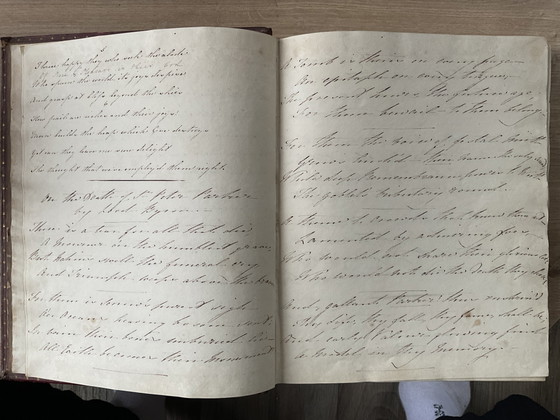 There hope, they who seek the
Who spurn the world, its joys despise
And grasp at Life beyond the skies
Thou paid us under and their joys
Down builds the hope which
Yet can they have no new delight
The thought that ever employ'd them right
On the Death of Sr. Peter Parker
by Lord Byron
There is a tear for all that die
A mourner in the humblest grave
But Nations swell the funeral cry
And Triumph weeps above the brave
For them is Sorrow's purest sigh
O'er Ocean's heaving bosom sent
In vain their bones unburied lie
All Earth becomes their Monument
A Tomb is theirs on every page
An epitaph on every tongue
The present hours the future age
For them bewail to them belong
For them the voice of festal Mirth
Grows hush'd their name the only
While deep Remembrance pours to Worth
The goblets tributary round
A theme to crowds that knew them not
Lamented by admiring foes
Who would not share their glorious
Who would not die the death they chose
And gallant Parker thus enshrin'd
Thy life, thy fall, thy fame, shall be
And early valour glowing find
A Model in thy Memory